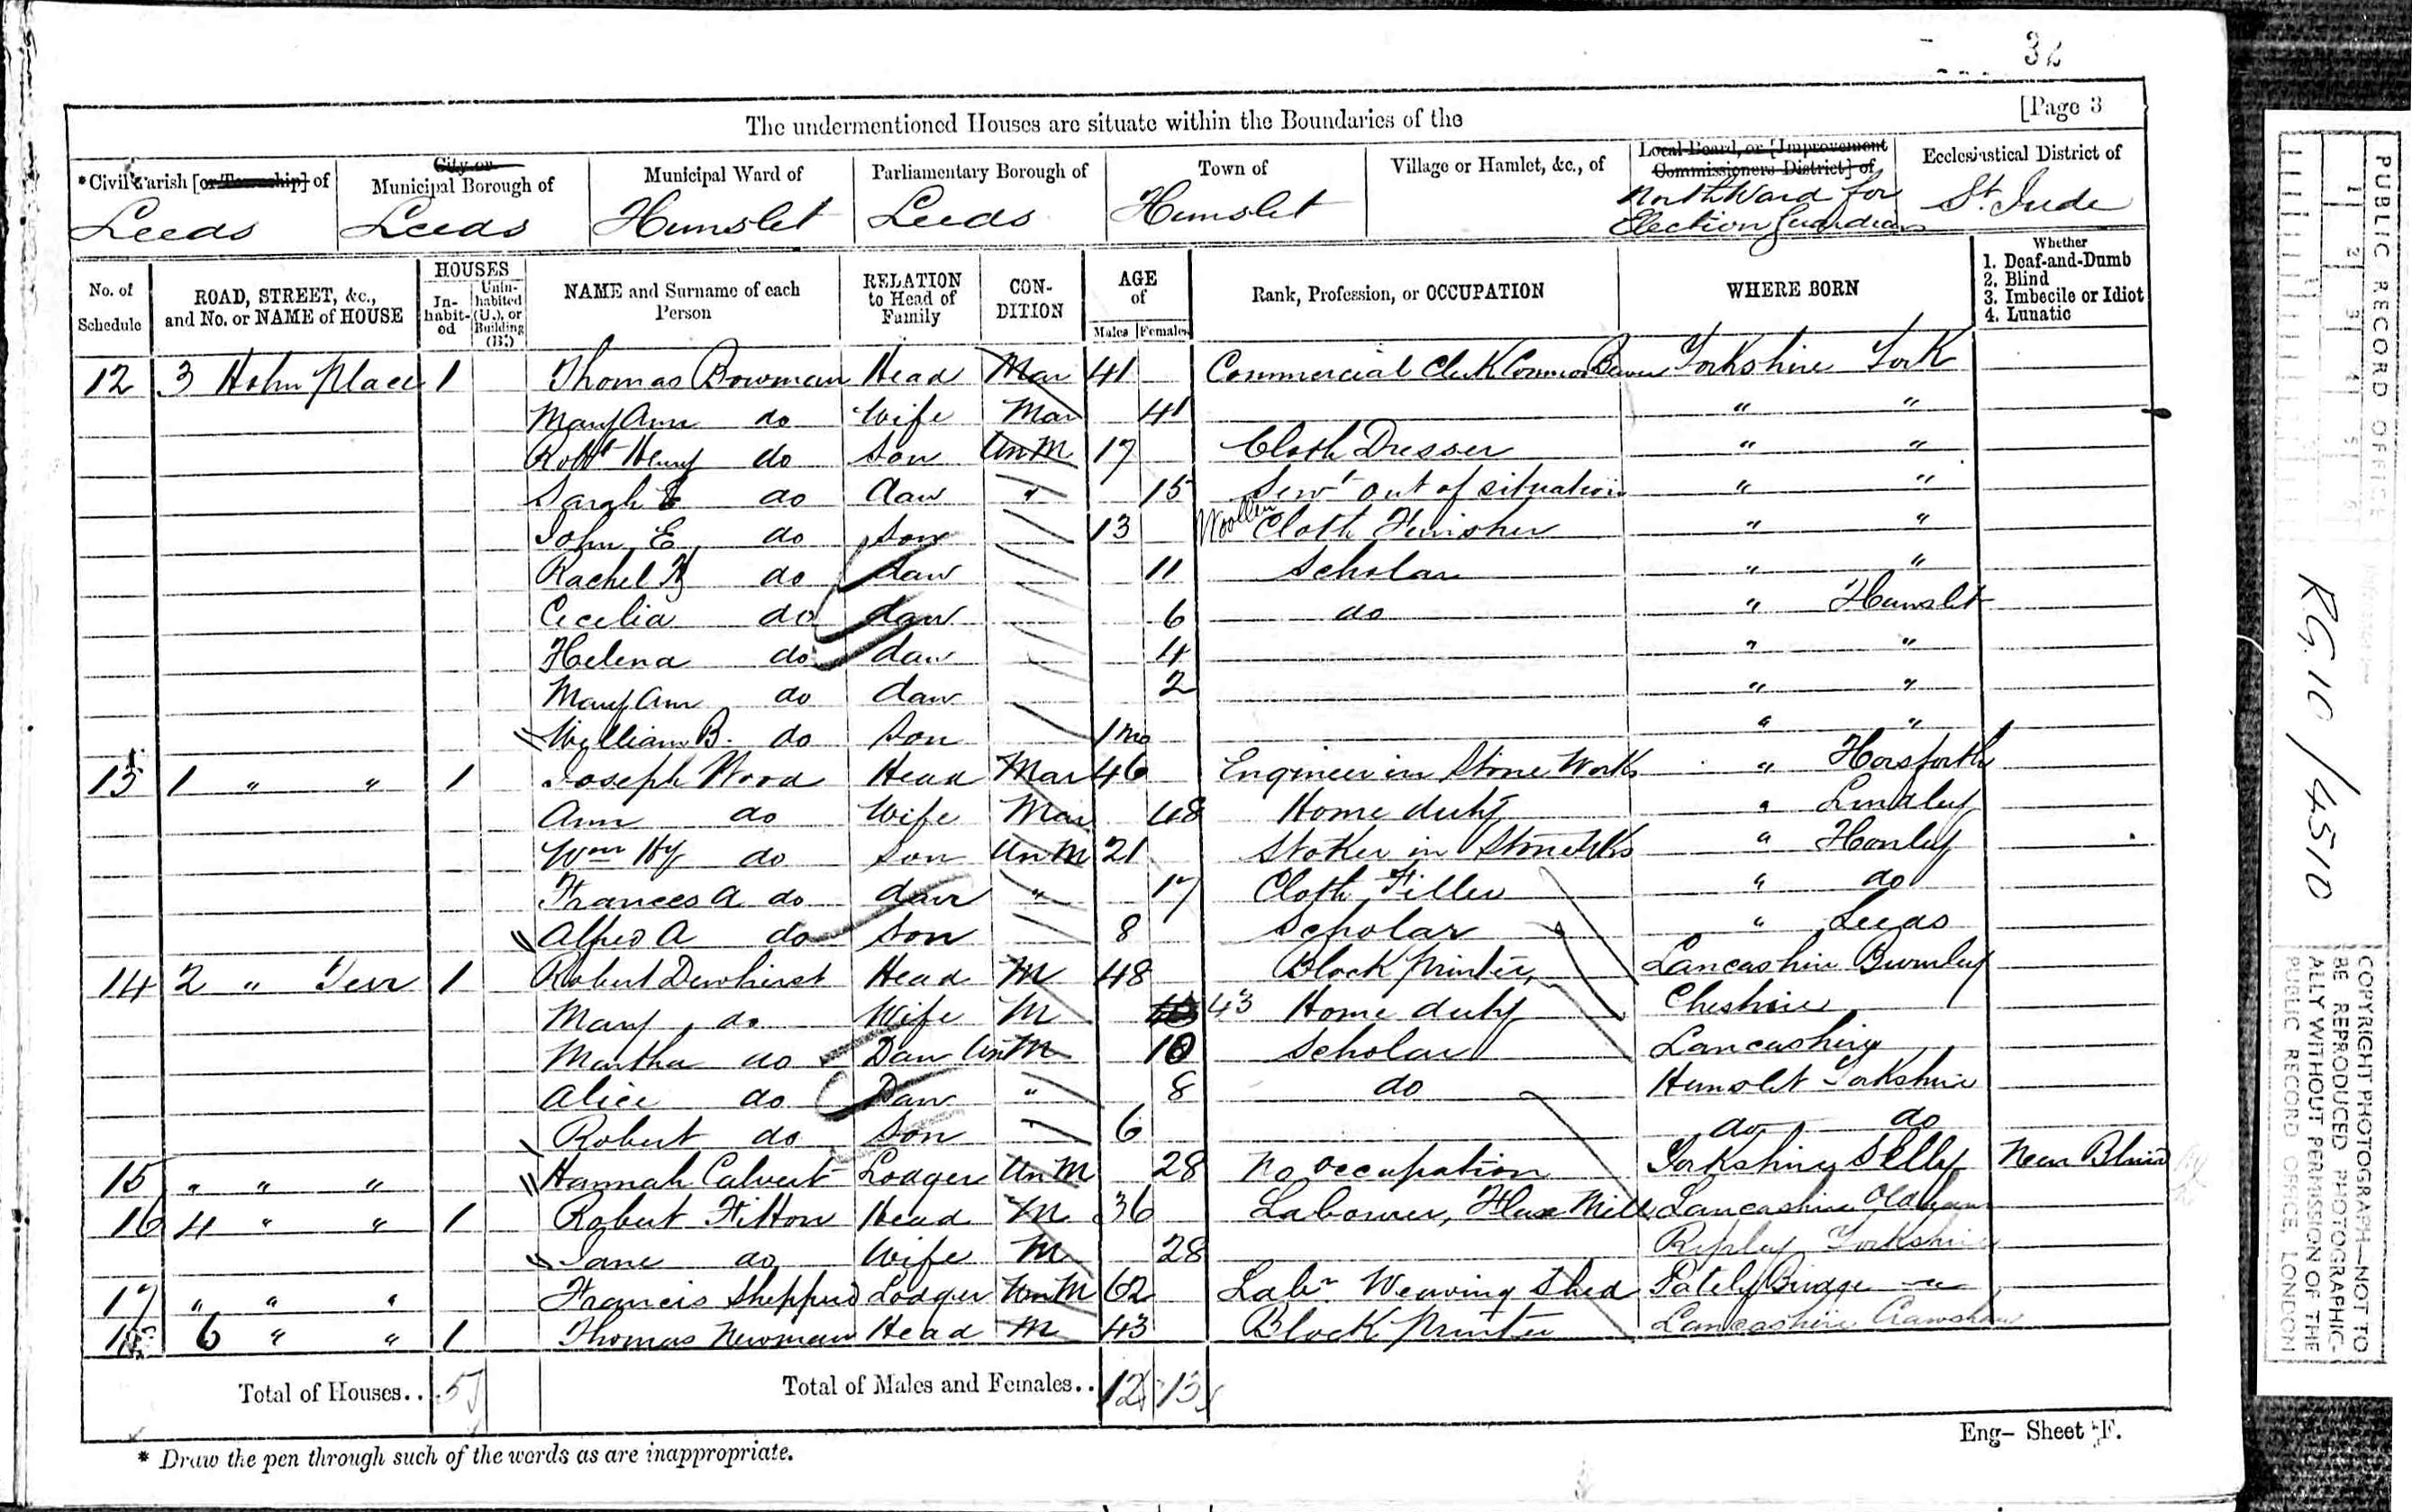 32
[Page 3
The undermentioned Houses are situate within the Boundaries of the
*Civil Parish [or Township] of
City or Municipal Borough of
Municipal Ward of
Parliamentary Borough of
Town of
Village or Hamlet, &c., of
Local Board, or [Improvement Commissioners District] of
Ecclesiastical District of
Leeds Leeds Hunslet Leeds Hunslet North Ward for Election Guardians St. Jude
No. of Schedule
ROAD, STREET, &c., and No. or NAME of HOUSE
HOUSES
In-habit-ed
Unin-habited (U.), or Building (B.)
NAME and Surname of each Person
RELATION to Head of Family
CON-DITION
AGE of
Males Females
Rank, Profession, or OCCUPATION
WHERE BORN
Whether
1. Deaf-and-Dumb
2. Blind
3. Imbecile or Idiot
4. Lunatic
12 3 Holm Place 1 Thomas Bowman Head Mar 41 Commercial Clerk Yorkshire York
Mary Ann do Wife Mar 41 " "
Robt Henry do Son UnM 17 Cloth Dresser " "
Sarah E do daw " 15 Servt out of situation " "
John E do son 13 Woollen Cloth Finisher " "
Rachel do daw 11 Scholar " "
Cecilia do daw 6 do " Hunslet
Helena do daw 4 " "
Mary Ann do daw 2 " "
William B. do son 1 mo " "
13 1 " " 1 Joseph Wood Head Mar 46 Engineer in Stone Works " Horsforth
Ann do Wife Mar 48 Home duty " Lindley
Wm Hy do Son UnM 21 Stoker in Stone Wks " Honley
Frances A do daur " 17 Cloth Filler " do
Alfred A do son 8 Scholar " Leeds
14 2 " Terr 1 Robert Dewhirst Head M 48 Block Printer, Lancashire Burnley
Mary do Wife M 43 Home duty Cheshire
Martha do Daw UnM 10 Scholar Lancashire
Alice do Daw " 8 do Hunslet Yorkshire
Robert do Son " 6 do do
15 " " " Hannah Calvert Lodger UnM 28 No occupation Yorkshire Selby Near Blind
16 4 " " 1 Robert Fitton Head M 36 Labourer, Flax Mill Lancashire Oldham
Jane do Wife M 28 Ripley Yorkshire
17 " " " Francis Shepperd Lodger UnM 62 Labr. Weaving Shed Pately Bridge "
18 6 " " 1 Thomas Newman Head M 43 Block Printer Lancashire Crawshaw
Total of Houses.. 5
Total of Males and Females.. 12 13
Eng- Sheet F.
* Draw the pen through such of the words as are inappropriate.
PUBLIC RECORD OFFICE
1 2 3 4 5 6
RG. 10 / 4510
COPYRIGHT PHOTOGRAPH—NOT TO
BE REPRODUCED PHOTOGRAPHIC-
ALLY WITHOUT PERMISSION OF THE
PUBLIC RECORD OFFICE, LONDON